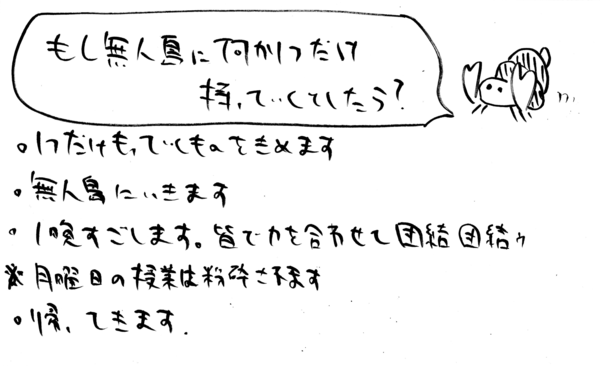 もし無人島に何か1つだけ
持っていくとしたら?
・1つだけもっていくものをきめます
・無人島にいきます
・1晩すごします。皆で力を合わせて団結団結ゥ
※月曜日の授業は粉砕されます
・帰ってきます.